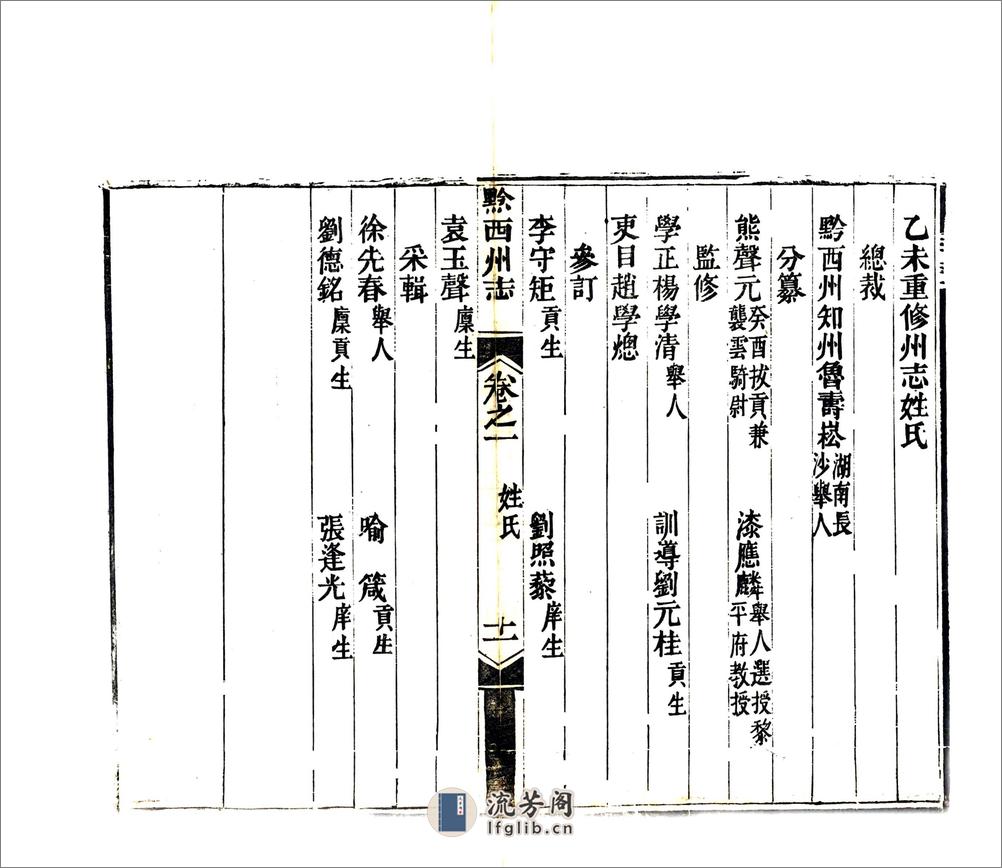 乙未重修州志姓氏
總裁
黔西州知州魯壽崧湖南長沙舉人
分纂
熊聲元癸酉拔貢兼襲雲騎尉 漆應麟舉人選授黎平府教授
監修
學正楊學清舉人 訓導劉元桂貢生
吏目趙學熜
參訂
李守矩貢生 劉照藜庠生
黔西州志 卷之一 姓氏 十一
袁玉聲廩生
采輯
徐先春舉人 喻箴貢生
劉德銘廩貢生 張逢光庠生
流芳阁
lfglib.cn